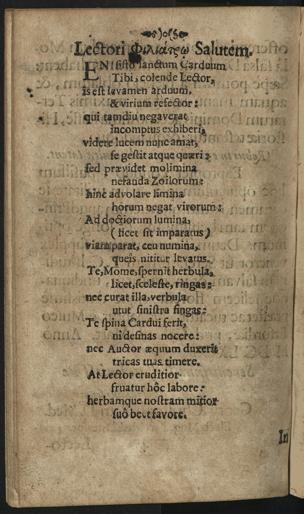 Lectori Φιλιάτρῳ Salutem.
EN sisto sanctum Carduum
Tibi, colende Lector,
is est levamen arduum,
& virium refector:
qui tamdiu negaverat
incomptus exhiberi,
videre lucem nunc amat,
se gestit atque quæri:
sed prævidet molimina
nefanda Zoilorum:
hinc advolare limina
horum negat virorum:
Ad doctiorum lumina,
(licet sit imparatus)
viam parat, ceu numina,
queis nititur levatus.
Te, Mome, spernit herbula,
licet, sceleste, ringas:
nec curat illa, verbula
utut sinistra fingas:
Te spina Cardui ferit,
ni desinas nocere:
nec Auctor æquum duxerit
tricas tuas timere.
At Lector eruditior
fruatur hôc labore:
herbamque nostram mitior
suô beet favore.
In